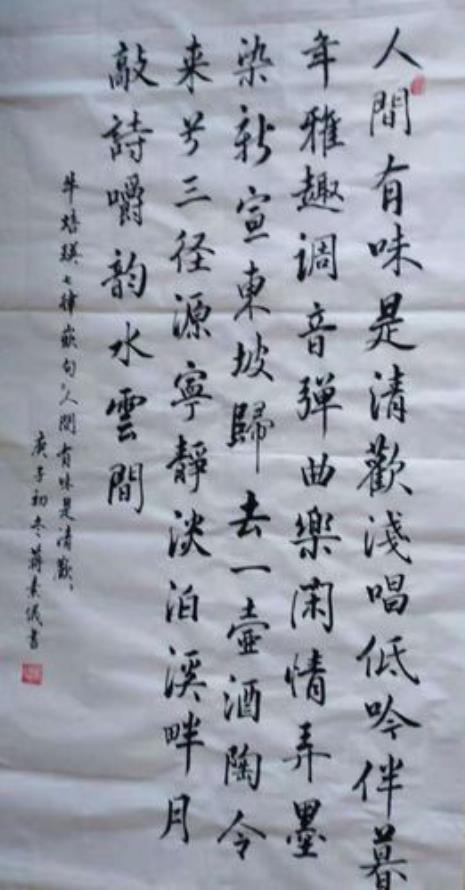 人間有味是清歡淺唱低吟伴暮
年雅趣调音彈曲樂闲情弄墨
染新宣東坡歸去一壺酒陶令
来兮三径源寧靜淡泊溪畔月
敲詩嚼韵水雲間
牛培瑛七律嵌句"人間有味是清歡"
庚子初冬蔣素書